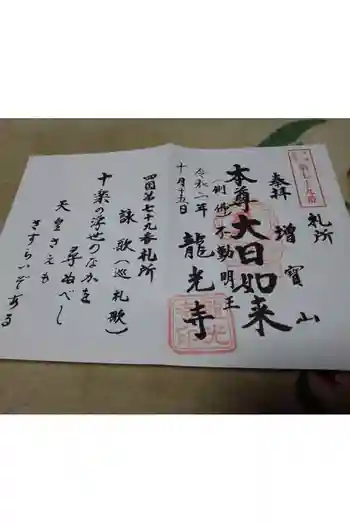 奉拝
札所
増寳山
本尊大日如来
(側佛不動明王
令和二年
十月十五日
龍光寺
四国第七十九番札所
詠歌(巡礼歌)
十楽の浮世のなかを
尋ぬべし
天皇さえも
さすらいぞある